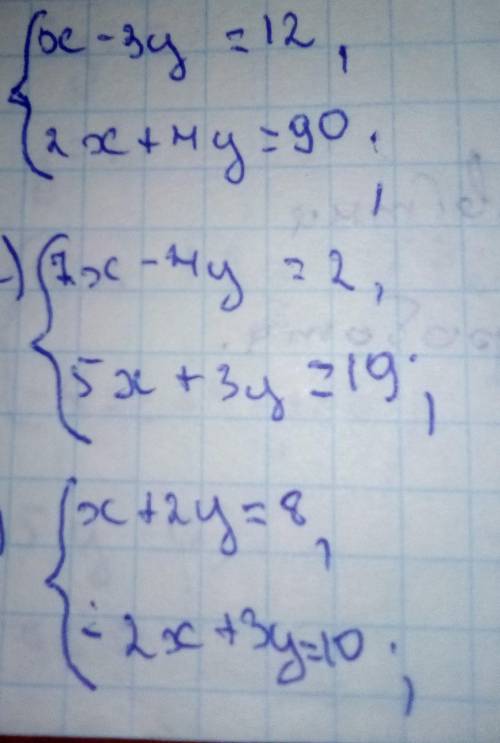 x - 3y = 12,
2x + 4y = 90.;
) 7x - 4y = 2,
5x + 3y = 19.;
) x + 2y = 8,
-2x + 3y = 10.;